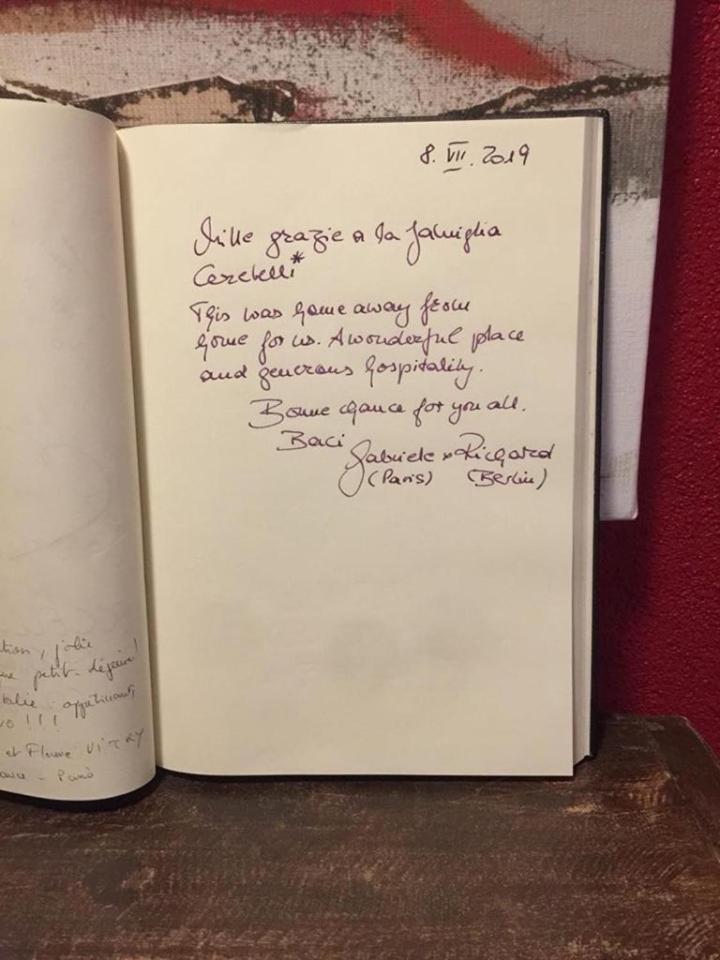 8. VII. 2019
Mille grazie a la famiglia
Cerebelli*
This was home away from
home for us. A wonderful place
and generous hospitality.
Bonne chance for you all.
Baci
Gabriele + Richard
(Paris) (Berlin)
tion, jolie
petit-déjeuner!
!!!
et Florence VITRY
- Paris